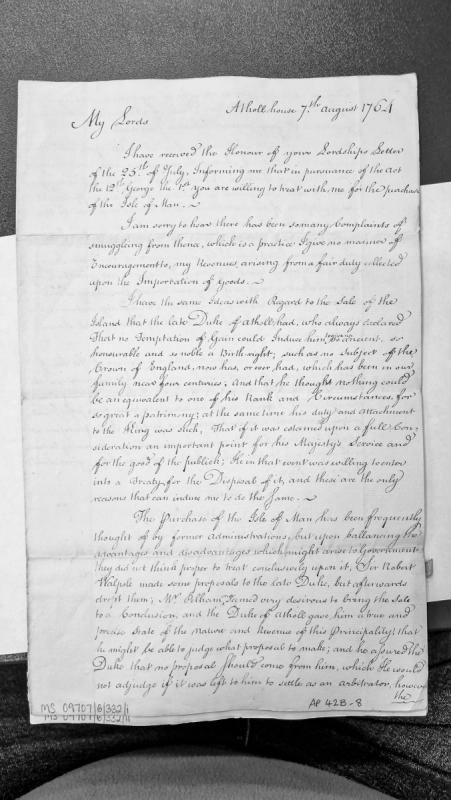 Atholl house 7.th august 1764
My Lords
I have received the Honour of your Lordships Letter
of the 25th of July, Informing me that in pursuance of the act
the 12th George the 1st you are willing to treat with me for the purchase
of the Isle of Man.
I am sorry to hear there has been so many Complaints of
smuggling from thence, which is a practice I give no manner of
Encouragement to, my Revenues, arising from a fair duty collected
upon the Importation of Goods.
I have the same Ideas with Regard to the Sale of the
Island that the late Duke of Atholl had, who always declared
That no Temptation of Gain could Induce him, to ancient, so
honourable and so noble a Birth right; such as no Subject of the
Crown of England, now has, or ever had, which has been in our
family near four centuries; And that he thought nothing could
be an equivalent to one of his Rank and Circumstances, for
so great a patrimony; at the same time his duty and attachment
to the King was such, That if it was esteemed upon a full Con,
sideration an important point for his Majesty's Service and
for the good of the publick; He in that event was willing to enter
into a Treaty for the Disposal of it, and these are the only
reasons that can induce me to do the same.
The Purchase of the Isle of Man has been frequently
thought of by former administrations, but upon ballancing the
advantages and disadvantages which might arise to Government
they did not think proper to treat conclusively upon it, Sir Robert
Walpole made some proposals to the late Duke, but afterwards
dropt them; Mr. Pelham, seemed very desirous to bring the Sale
to a Conclusion, and the Duke of Atholl gave him a true and
precise State of the nature and Revenue of this Principality that
he might be able to judge what proposal to make; and he assured the
Duke that no proposal should come from him, which He would
not adjudge if it was left to him to settle as an arbitrator, however
the
MS 09707/6/332/1
MS 09707/6/332/1
AP 42B-8